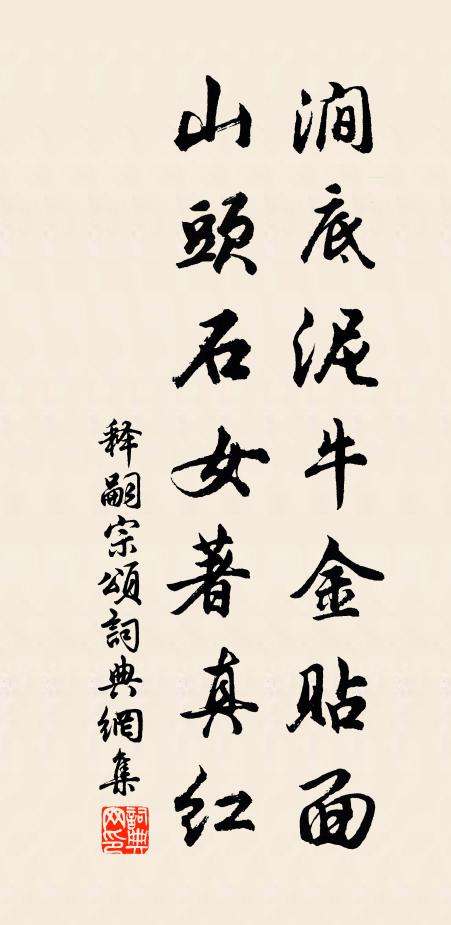 澗底泥牛金貼面
山頭石女著真红
释嗣宗頌詞典網集
詞典網印